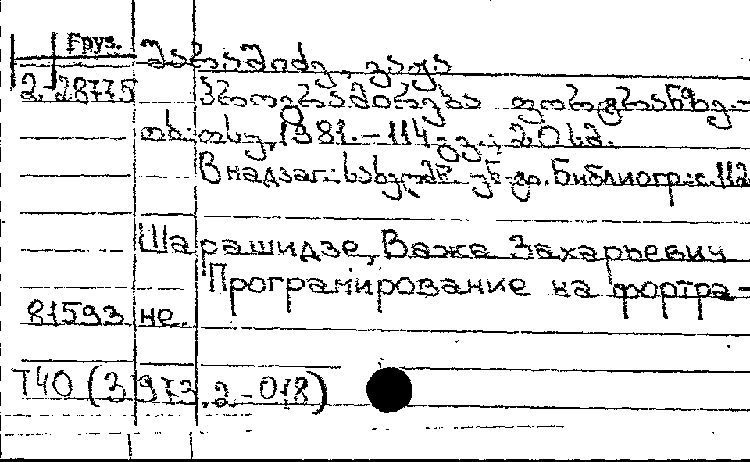 Груз.
შარაშიძე, ვაჟა
2.-28775 პროგრამირება ფორტრანზე.-
თბ.: თსუ, 1981.-114 გვ.; 20 სმ.
В надзаг.: სახელმწ. უნ-ტი. Библиогр.: с.112
Шарашидзе, Важа Захарьевич
Програмирование на фортра-
81593 не.
Т40 (3 973.2-018)